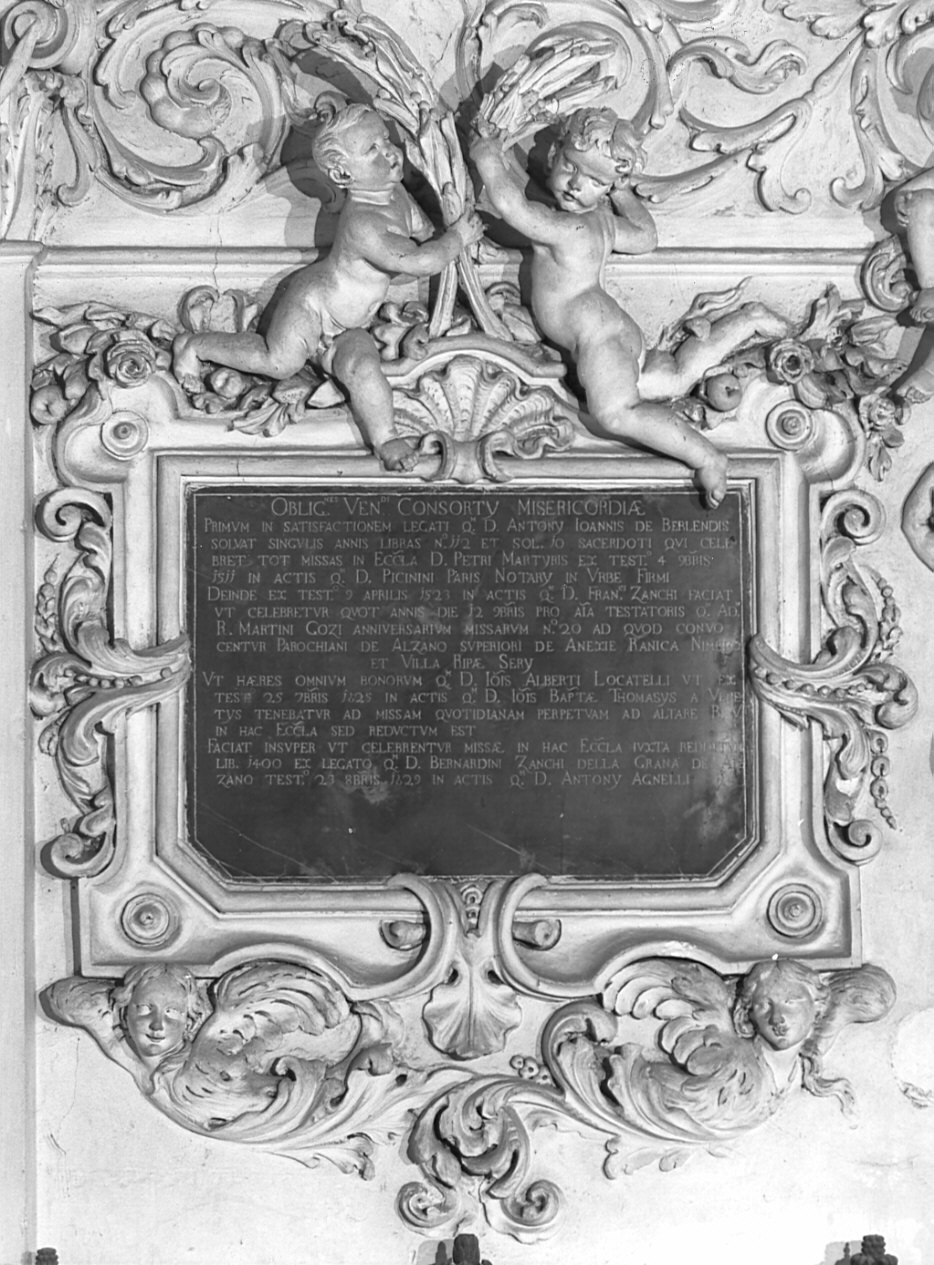 OBLIG.NES VEN.DI CONSORTV MISERICORDIÆ
PRIMVM IN SATISFACTIONEM LEGATI Q.M D. ANTONY IOANNIS DE BERLENDIS
SOLVAT SINGVLIS ANNIS LIBRAS N.o 112 ET SOL. 10 SACERDOTI QVI CELE
BRET TOT MISSAS IN ECCĹA D. PETRI MARTYRIS EX TEST.o 4 9BRIS
1511 IN ACTIS Q. D. PICININI PARIS NOTARY IN VRBE FIRMI
DEINDE EX TEST.o 9 APRILIS 1523 IN ACTIS Q.M D. FRAN. ZANCHI FACIAT
VT CELEBRETVR QVOT ANNIS DIE 12 9BRIS PRO AÍA TESTATORIS Q. AD.
R. MARTINI GOZI ANNIVERSARIVM MISSARVM N.o 20 AD QVOD CONVO
CENTVR PAROCHIANI DE ALZANO SVPERIORI DE ANEXIE RANICA
ET VILLA RIPÆ SERY
VT HÆRES OMNIVM BONORVM Q.M D. IOÍS ALBERTI LOCATELI VT EX
TEST.o 25 7BRIS 1625 IN ACTIS Q.M D. IOÍS BAPTÆ THOMASVS A
TVS TENEBATVR AD MISSAM QVOTIDIANAM PERPETVAM AD ALTARE
IN HAC ECCĹA SED REDVCTVM EST
FACIAT INSVPER VT CELEBRENTVR MISSÆ IN HAC ECCĹA IVXTA
LIB. 1400 EX LEGATO Q.M D. BERNARDINI ZANCHI DELLA GRANA DE AL
ZANO TEST.o 23 8BRIS 1629 IN ACTIS Q.M D. ANTONY AGNELLI